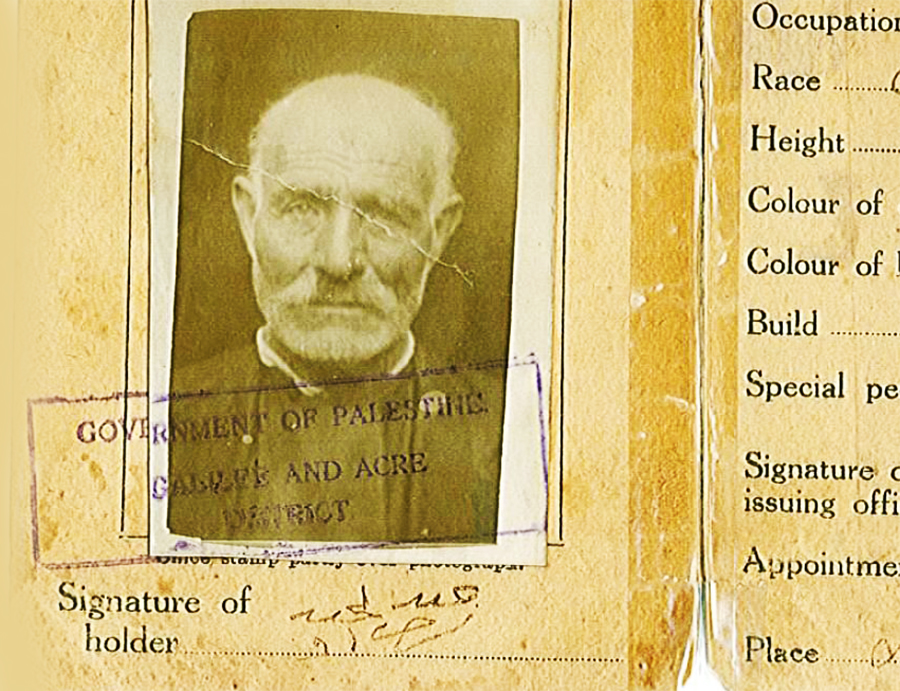 GOVERNMENT OF PALESTINE.
GALILEE AND ACRE
DISTRICT
Office stamp partly over photograph.
Signature of
holder
Occupation
Race
Height
Colour of
Colour of
Build
Special pe
Signature o
issuing offi
Appointme
Place